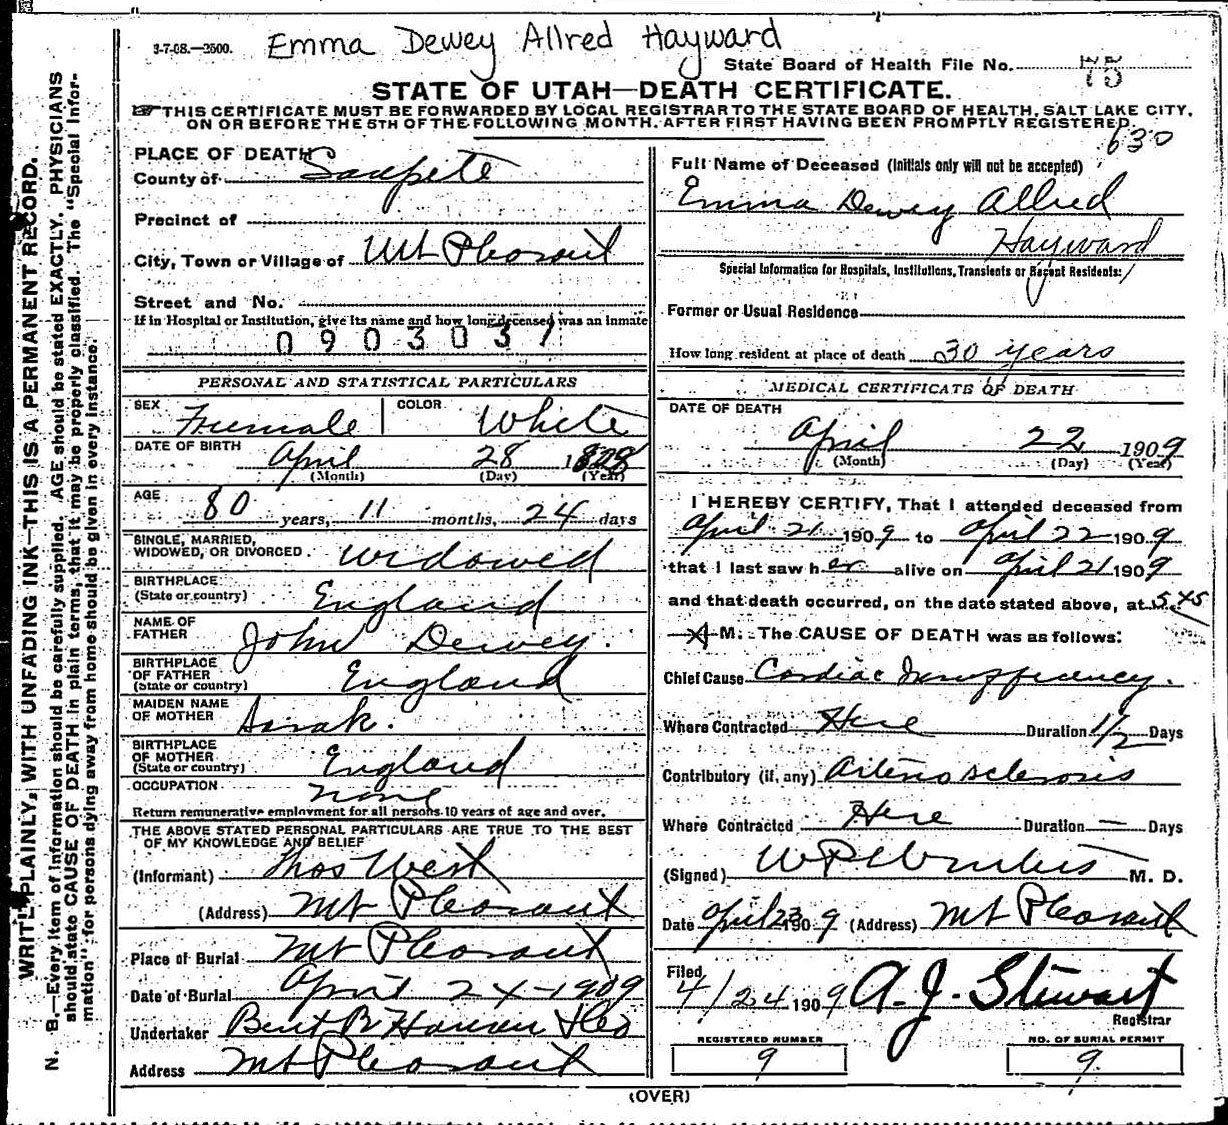 3-7-08.—2500.
Emma Dewey Allred Hayward
State Board of Health File No. 75
STATE OF UTAH—DEATH CERTIFICATE.
THIS CERTIFICATE MUST BE FORWARDED BY LOCAL REGISTRAR TO THE STATE BOARD OF HEALTH, SALT LAKE CITY,
ON OR BEFORE THE 5TH OF THE FOLLOWING MONTH, AFTER FIRST HAVING BEEN PROMPTLY REGISTERED.
630
WRITE PLAINLY, WITH UNFADING INK—THIS IS A PERMANENT RECORD.
N. B.—Every item of information should be carefully supplied. AGE should be stated EXACTLY. PHYSICIANS
should state CAUSE OF DEATH in plain terms, that it may be properly classified. The "Special Infor-
mation" for persons dying away from home should be given in every instance.
PLACE OF DEATH
County of Sanpete
Precinct of
City, Town or Village of Mt Pleasant
Street and No.
If in Hospital or Institution, give its name and how long deceased was an inmate
0903031
PERSONAL AND STATISTICAL PARTICULARS
SEX Female COLOR White
DATE OF BIRTH April 28 1828
(Month) (Day) (Year)
AGE 80 years, 11 months, 24 days
SINGLE, MARRIED,
WIDOWED, OR DIVORCED. widowed
BIRTHPLACE
(State or country) England
NAME OF
FATHER John Dewey.
BIRTHPLACE
OF FATHER
(State or country) England
MAIDEN NAME
OF MOTHER Sarah.
BIRTHPLACE
OF MOTHER
(State or country) England
OCCUPATION none
Return remunerative employment for all persons 10 years of age and over.
THE ABOVE STATED PERSONAL PARTICULARS ARE TRUE TO THE BEST
OF MY KNOWLEDGE AND BELIEF
(Informant) Thos West
(Address) Mt Pleasant
Place of Burial Mt Pleasant
Date of Burial April 24-1909
Undertaker Bent R Hansen
Address Mt Pleasant
Full Name of Deceased (Initials only will not be accepted)
Emma Dewey Allred
Hayward
Special Information for Hospitals, Institutions, Transients or Recent Residents:
Former or Usual Residence
How long resident at place of death 30 years
MEDICAL CERTIFICATE OF DEATH
DATE OF DEATH
April 22 1909
(Month) (Day) (Year)
I HEREBY CERTIFY, That I attended deceased from
April 21 1909 to April 22 1909
that I last saw her alive on April 21 1909
and that death occurred, on the date stated above, at 5.45
A M. The CAUSE OF DEATH was as follows:
Chief Cause Cardiac Insufficiency.
Where Contracted Here Duration 1/2 Days
Contributory (if, any) Arterio sclerosis
Where Contracted Here Duration — Days
(Signed) M. D.
Date April 23 1909 (Address) Mt Pleasant
Filed
4/24 1909 A. J. Stewart
Registrar
REGISTERED NUMBER
9
NO. OF BURIAL PERMIT
9.
(OVER)